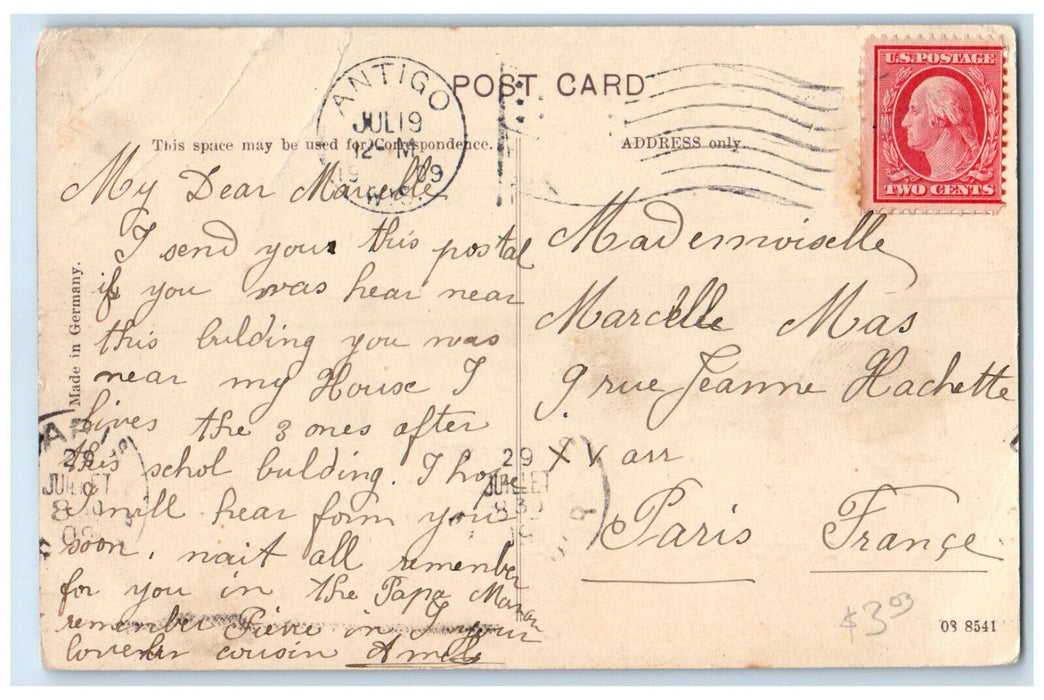 POST CARD
ANTIGO
JUL 19
12 M
1909
WIS
U.S. POSTAGE
TWO CENTS
This space may be used for Correspondence.
ADDRESS only.
Made in Germany.
My Dear Marcelle
I send your this postal
if you was hear near
this bulding you was
near my House I
lives the 3 ones after
this schol bulding. I hope
I will hear form you
soon. nait all remenber
for you in the Papa Maman
remember in your
cousin
Mademoiselle
Marcelle Mas
9 rue Jeanne Hachette
XV arr
Paris France
PARIS
29
JUILLET
8 30
09
29
JUILLET
8 30
$3.03
03 8541